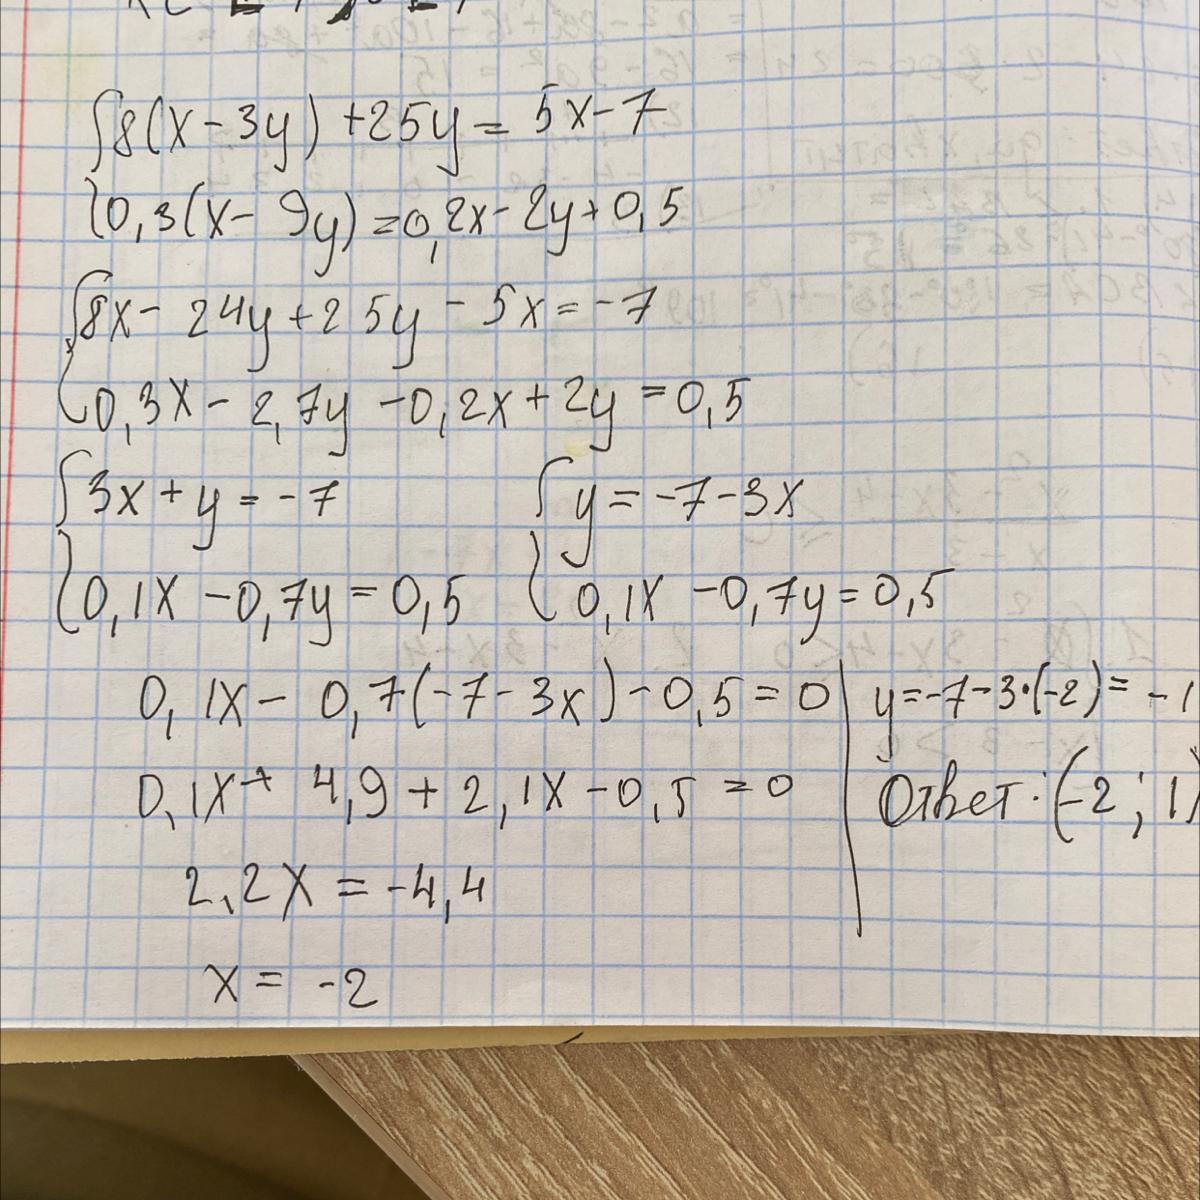 8(x-3y)+25y=5x-7
0,3(x-9y)=0,2x-2y+0,5
8x-24y+25y-5x=-7
0,3x-2,7y-0,2x+2y=0,5
3x+y=-7
0,1x-0,7y=0,5
y=-7-3x
0,1x-0,7y=0,5
0,1x-0,7(-7-3x)-0,5=0
0,1x+4,9+2,1x-0,5=0
2,2x=-4,4
x=-2
y=-7-3·(-2)=-1
Ответ:(-2;1)